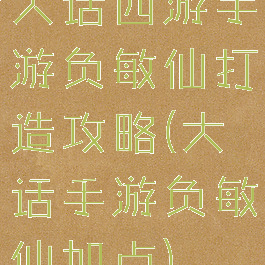 大话西游手
游负敏仙打
造攻略(大
话手游负敏
仙加点)